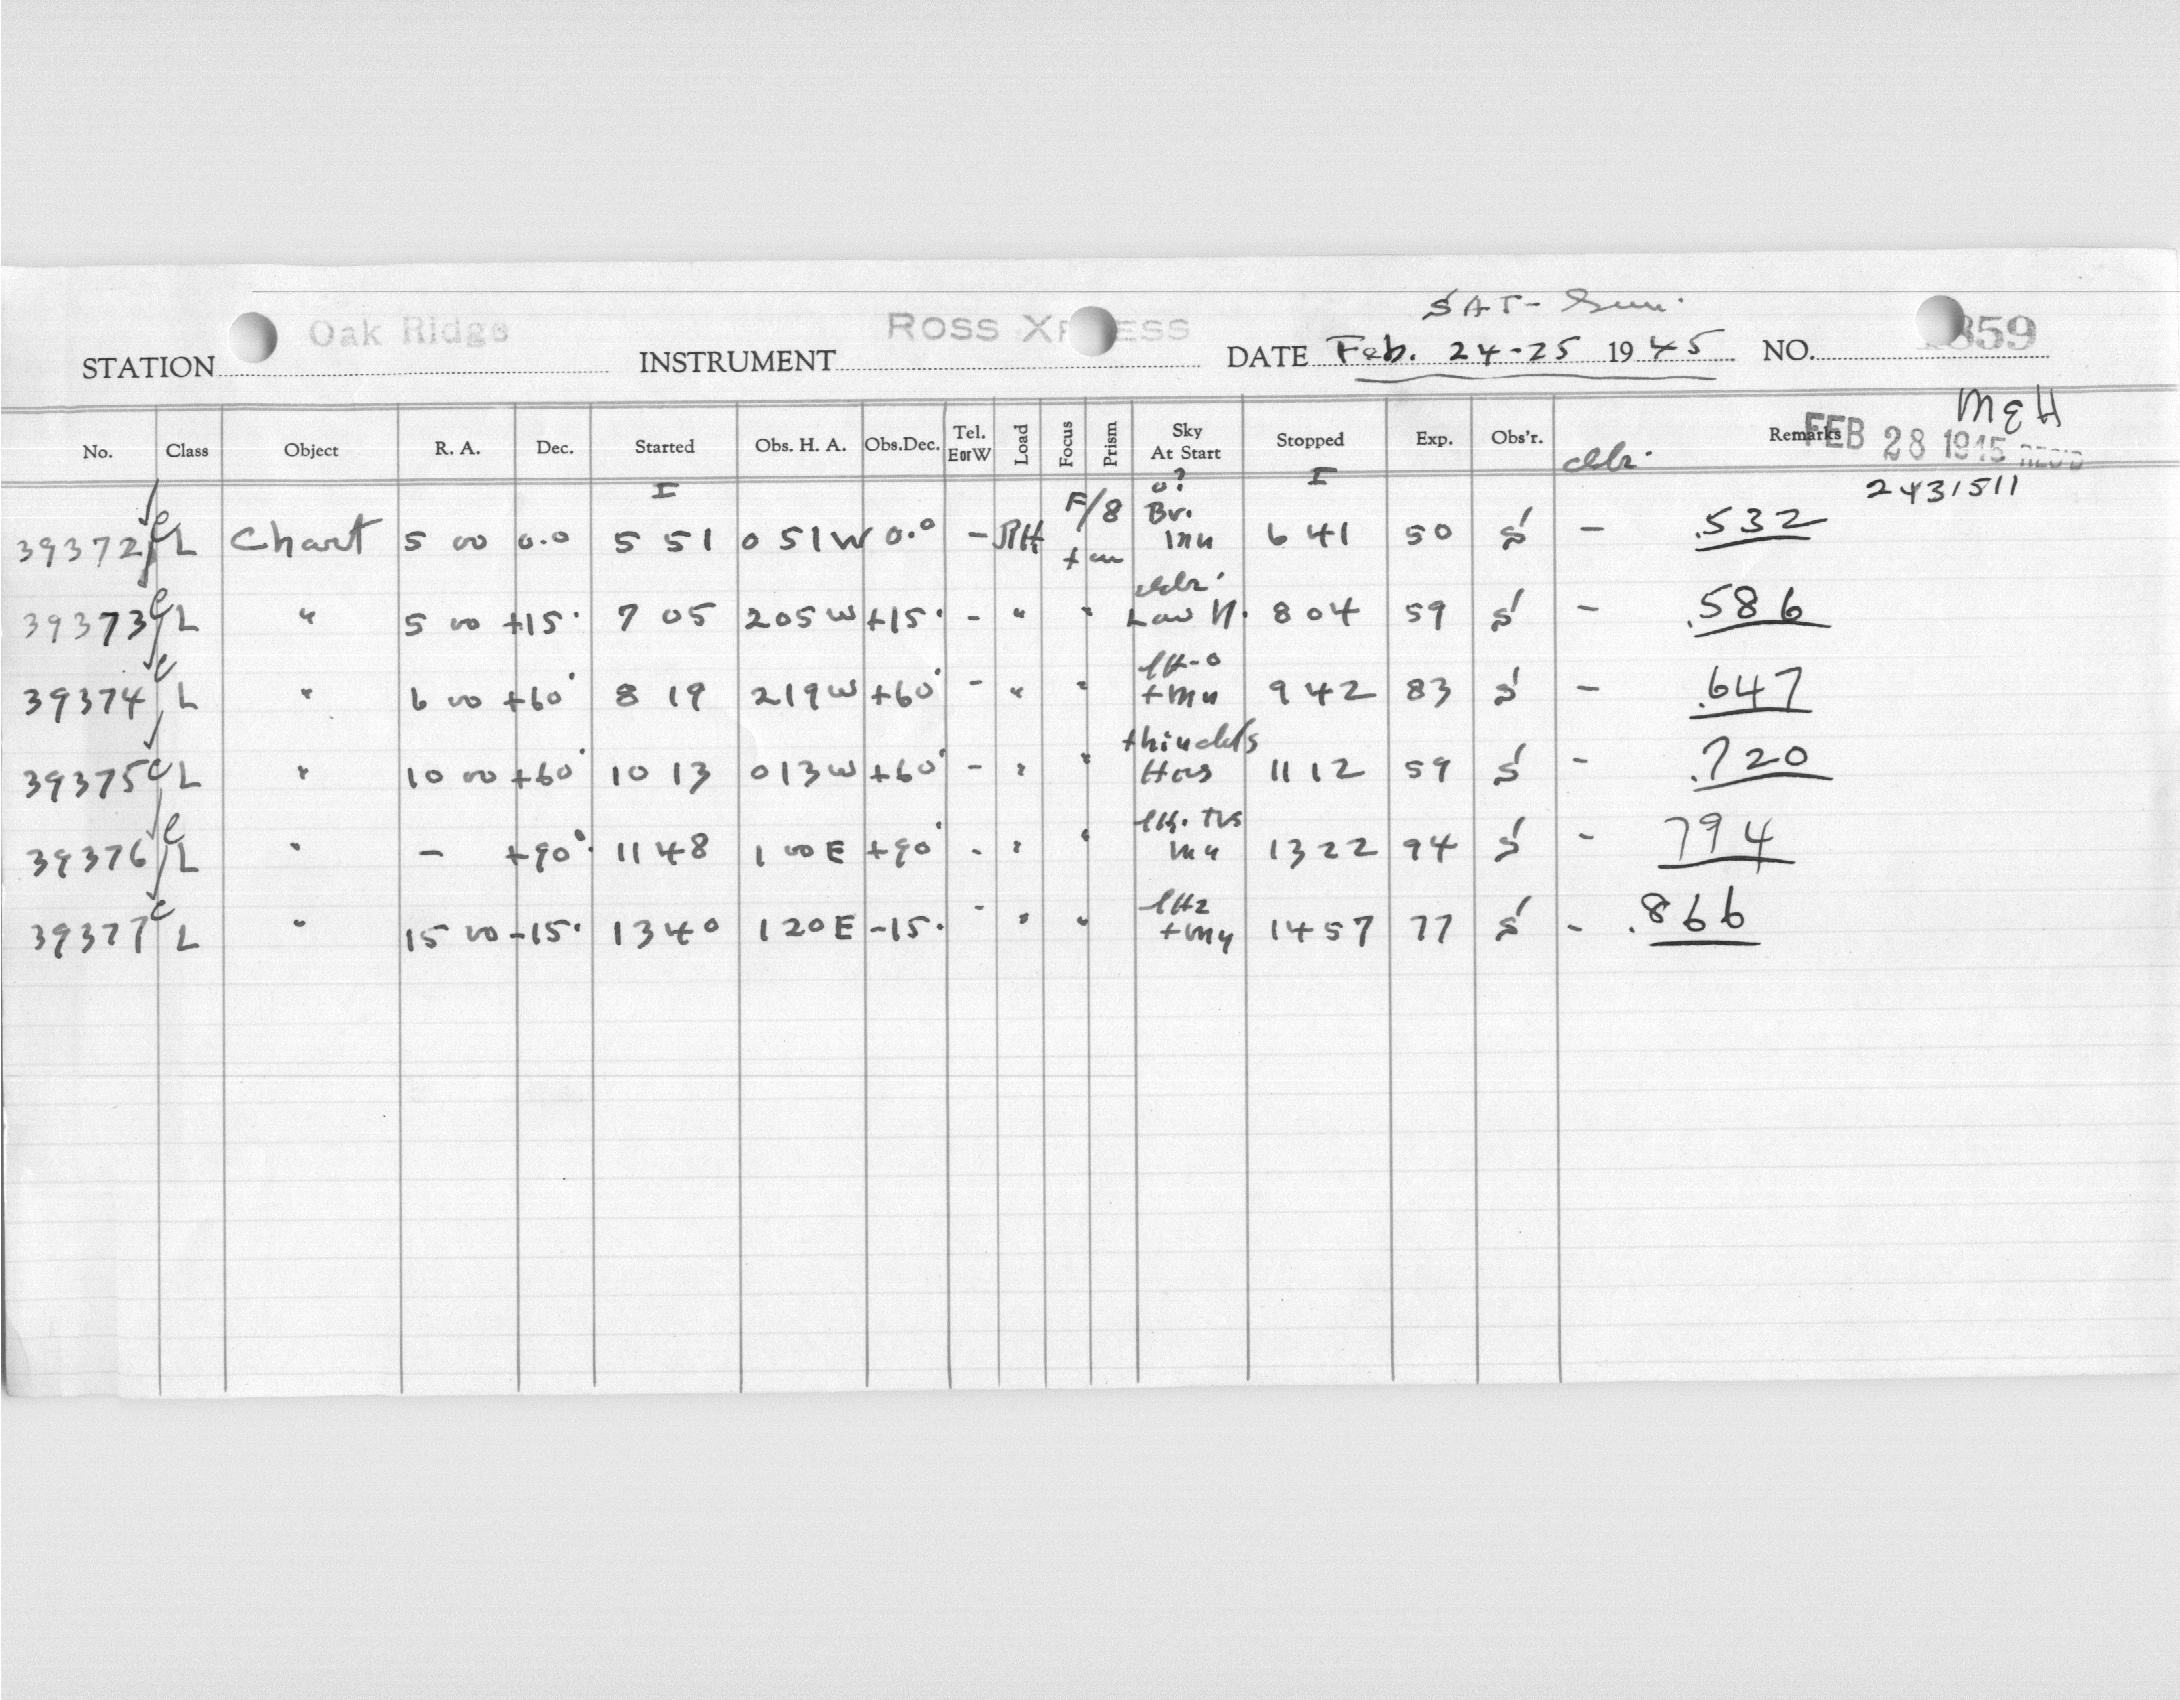 SAT - Sun.
STATION Oak Ridge INSTRUMENT ROSS XPRESS DATE Feb. 24-25 1945 NO. 859
MEH
No. Class Object R. A. Dec. Started Obs. H. A. Obs.Dec. Tel. E or W Load Focus Prism Sky At Start Stopped Exp. Obs'r. Remarks
FEB 28 1945 REC'D
2431511
39372 L Chart 5 00 0.0 5 51 0 51 W 0.0 - F/8 Br. 6 41 50 S - .532
39373 L " 5 00 +15° 7 05 2 05 W +15° - " " Low H. 8 04 59 S - .586
39374 L " 6 00 +60° 8 19 2 19 W +60° - " " 9 42 83 S - .647
39375 L " 10 00 +60° 10 13 0 13 W +60° - " " 11 12 59 S - .720
39376 L " - +90° 11 48 1 00 E +90° - " " 13 22 94 S - 794
39377 L " 15 00 -15° 13 40 1 20 E -15° - " " 14 57 77 S - .866